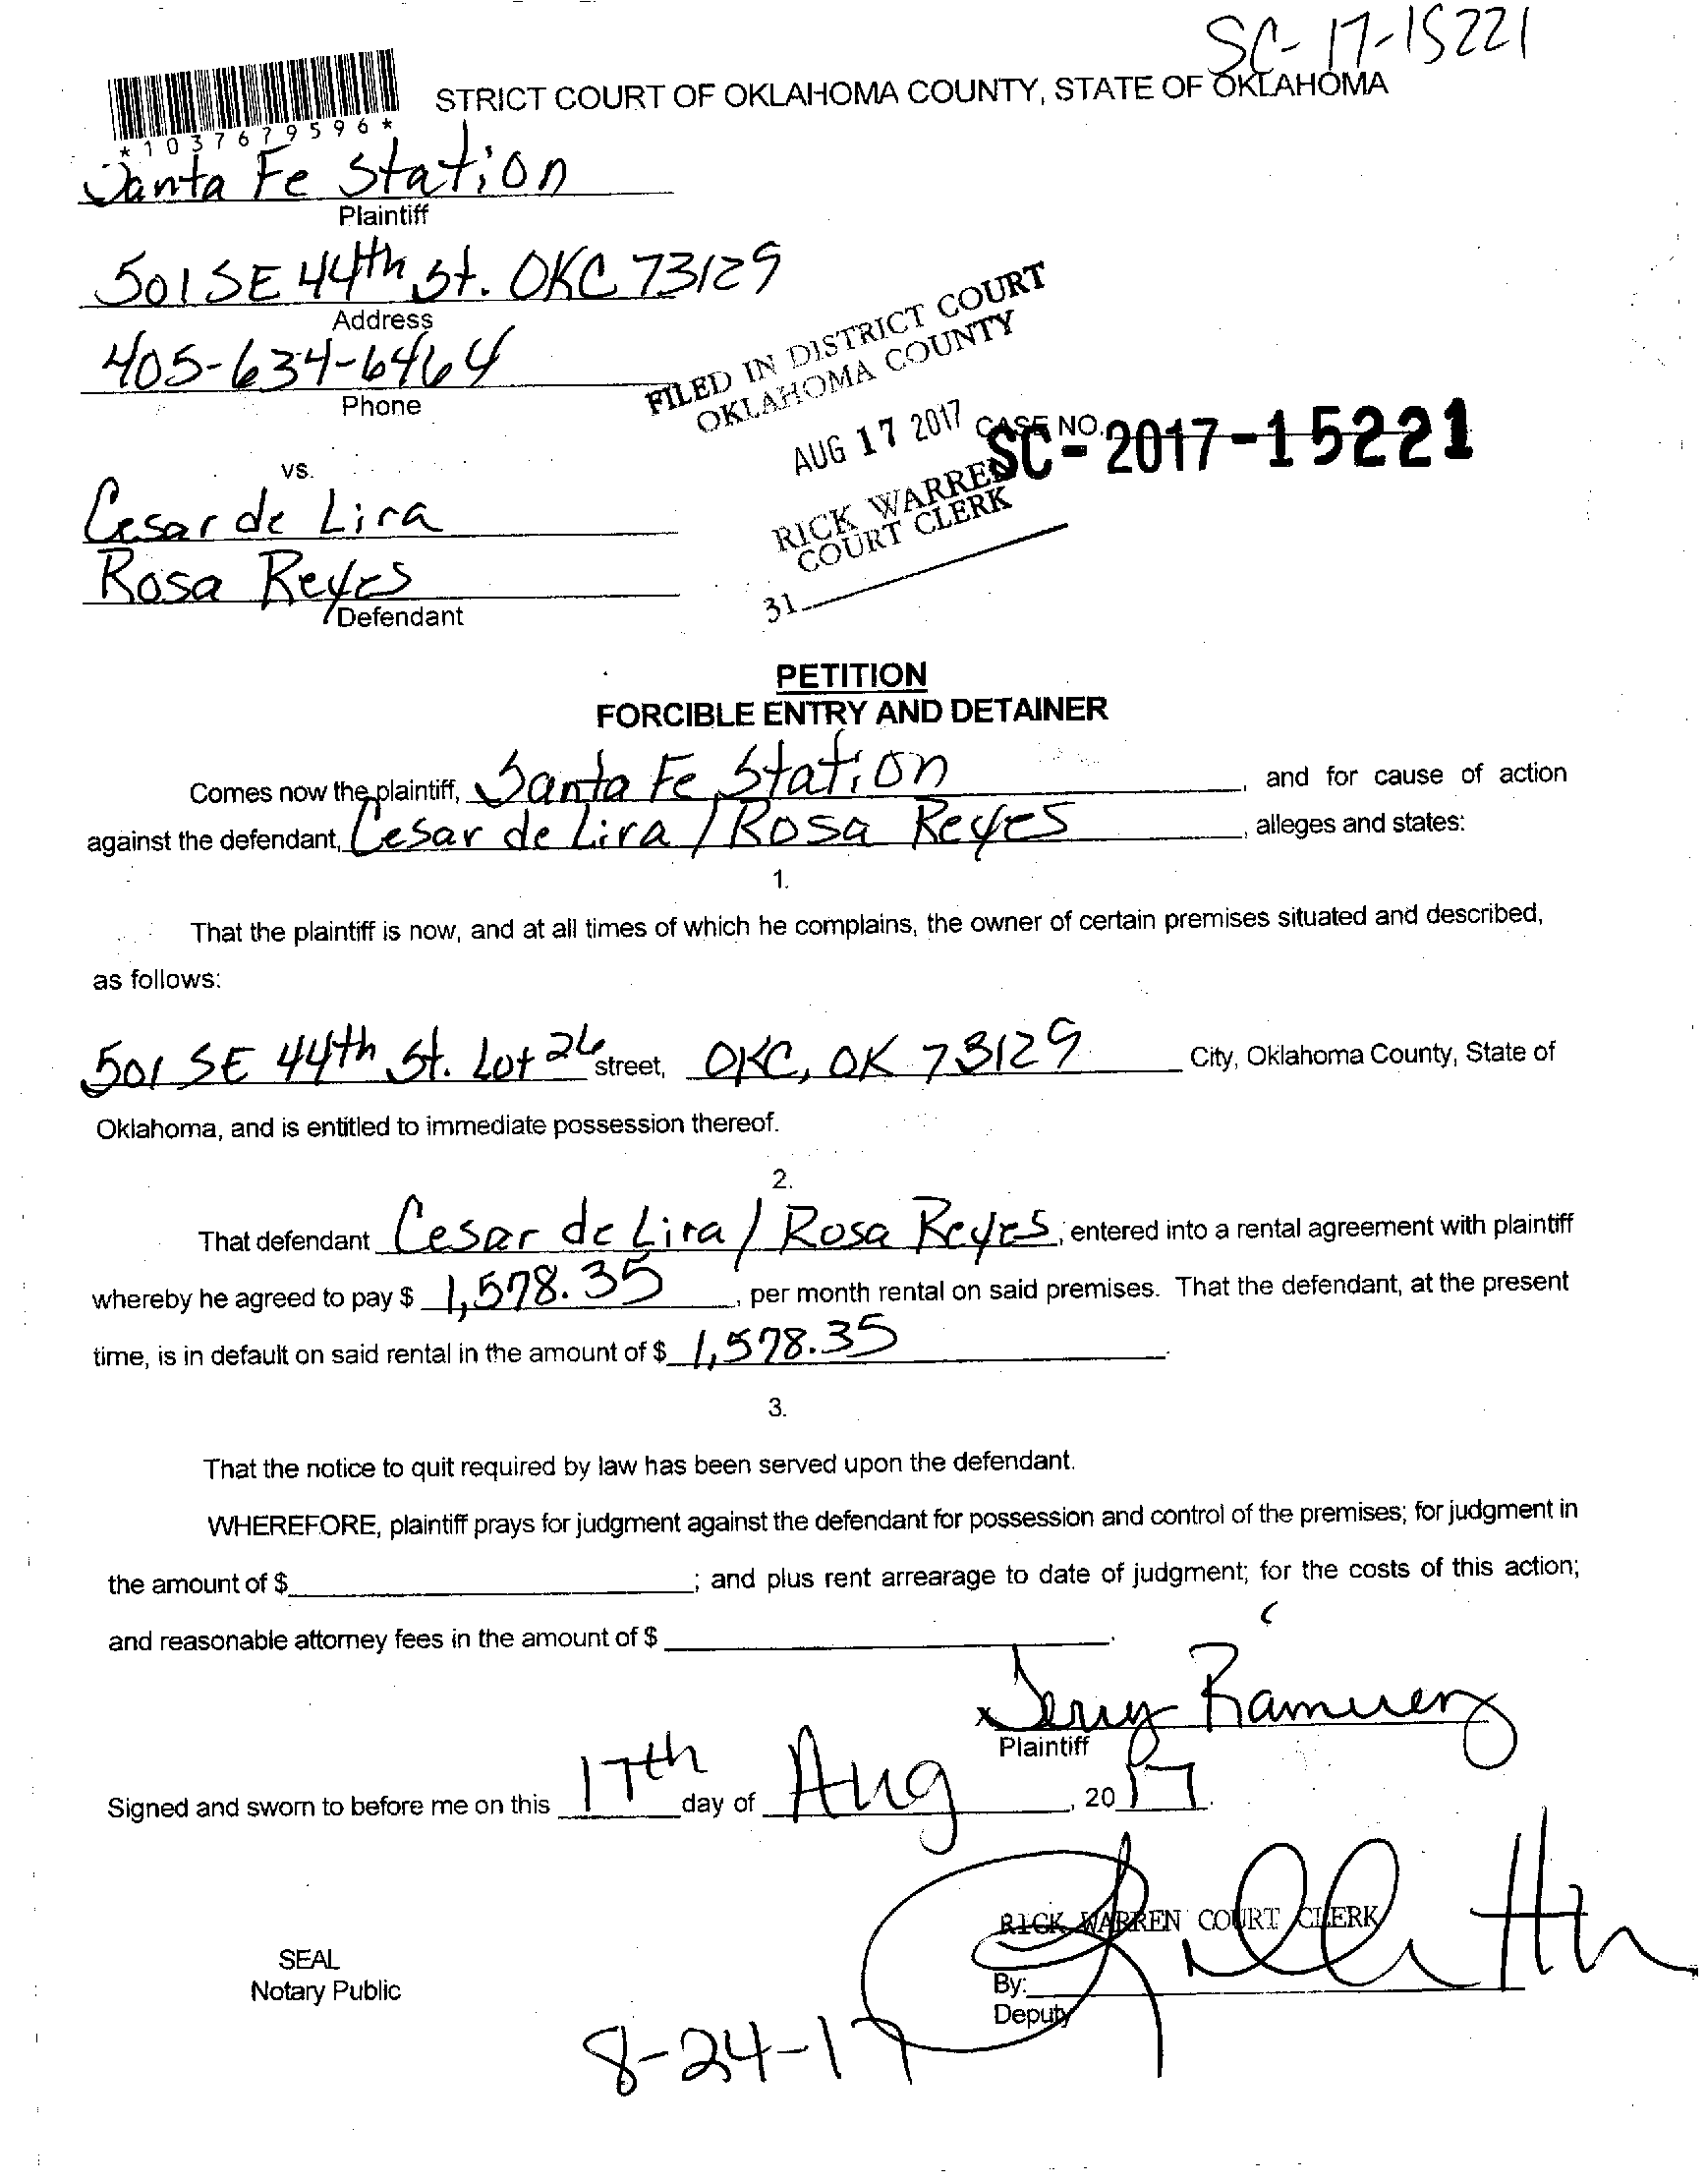 SC-17-15221
STRICT COURT OF OKLAHOMA COUNTY, STATE OF OKLAHOMA
*1037679596*
Santa Fe Station
Plaintiff
501 SE 44th St. OKC 73129
Address
405-634-6464
Phone
FILED IN DISTRICT COURT
OKLAHOMA COUNTY
AUG 17 2017
CASE NO. SC-2017-15221
RICK WARREN
COURT CLERK
31
vs.
Cesar de Lira
Rosa Reyes
Defendant
PETITION
FORCIBLE ENTRY AND DETAINER
Comes now the plaintiff, Santa Fe Station, and for cause of action
against the defendant, Cesar de Lira / Rosa Reyes, alleges and states:
1.
That the plaintiff is now, and at all times of which he complains, the owner of certain premises situated and described,
as follows:
501 SE 44th St. Lot 26 street, OKC, OK 73129 City, Oklahoma County, State of
Oklahoma, and is entitled to immediate possession thereof.
2.
That defendant Cesar de Lira / Rosa Reyes, entered into a rental agreement with plaintiff
whereby he agreed to pay $ 1,578.35, per month rental on said premises. That the defendant, at the present
time, is in default on said rental in the amount of $ 1,578.35.
3.
That the notice to quit required by law has been served upon the defendant.
WHEREFORE, plaintiff prays for judgment against the defendant for possession and control of the premises; for judgment in
the amount of $ ; and plus rent arrearage to date of judgment; for the costs of this action;
and reasonable attorney fees in the amount of $ .
x Jerry Ramirez
Plaintiff
Signed and sworn to before me on this 17th day of Aug, 2017.
RICK WARREN COURT CLERK
SEAL
Notary Public
By:
Deputy
8-24-17